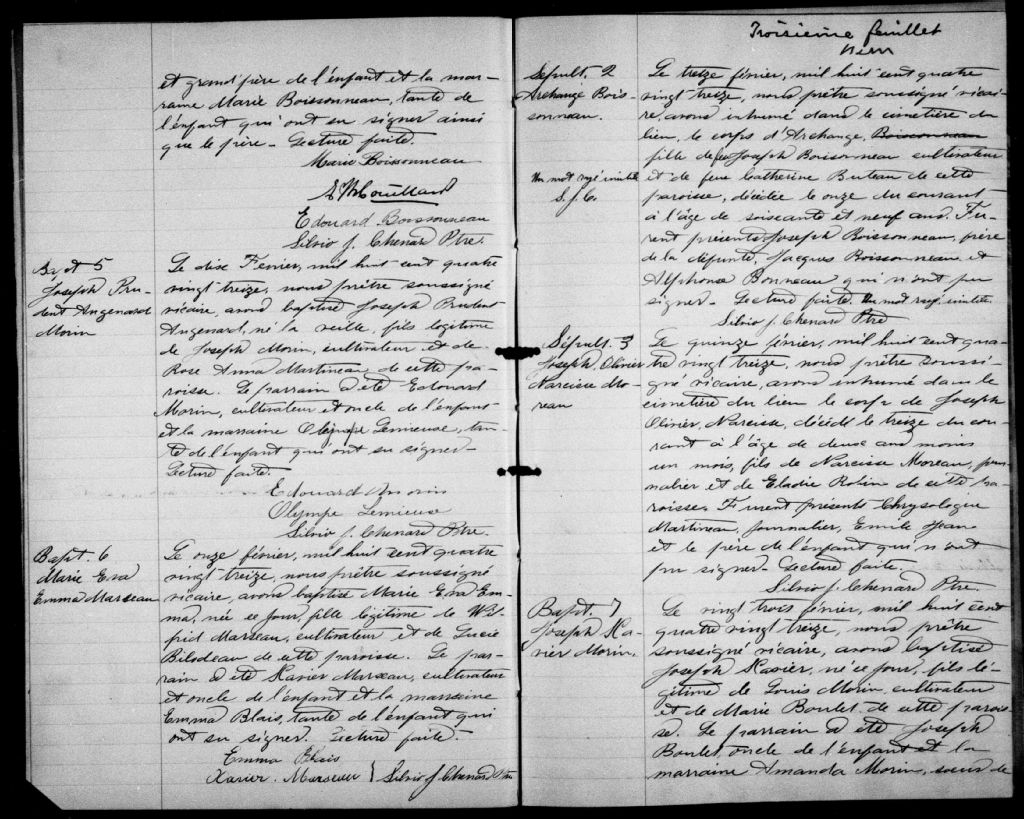 et grand'père de l'enfant et la mar-
raine Marie Boissonneau, tante de
l'enfant qui ont su signer ainsi
que le père - Lecture faite.
Marie Boissonneau
Edouard Boissonneau
Silvio J. Chenard Ptre.
Bapt 5
Joseph Pru-
dent Angenard
Morin
Le dise Fevrier, mil huit cent quatre
vingt treize, nous prêtre soussigné
vicaire, avons baptisé Joseph Prudent
Angenard, né la veille, fils légitime
de Joseph Morin, cultivateur et de
Rose Anna Martineau de cette pa-
roisse. Le parrain a été Edouard
Morin, cultivateur et oncle de l'enfant
et la marraine Olympe Lemieuse, tan-
te de l'enfant qui ont su signer -
Lecture faite.
Edouard Morin
Olympe Lemieuse
Silvio J. Chenard Ptre.
Bapt. 6
Marie Eva
Emma Marseau
Le onze février, mil huit cent quatre
vingt treize, nous prêtre soussigné
vicaire, avons baptisé Marie Eva Em-
ma, née ce jour, fille légitime de Wil-
frid Marseau, cultivateur et de Lucie
Bilodeau de cette paroisse. Le par-
rain a été Xavier Marseau, cultivateur
et oncle de l'enfant et la marraine
Emma Blais, tante de l'enfant qui
ont su signer. Lecture faite.
Emma Blais
Xavier Marseau } Silvio J Chenard Ptre
Troisième feuillet
Sépult. 2
Archange Bois-
sonneau.
Un mot rayé inutile
S. J. C.
Le treize février, mil huit cent quatre
vingt treize, nous prêtre soussigné vicai-
re, avons inhumé dans le cimetière du
lieu, le corps d'Archange, Boissonneau
fille de feu Joseph Boissonneau cultivateur
et de feue Catherine Buteau de cette
paroisse, décédée le onze du courant
à l'âge de soiscante et neuf ans. Fu-
rent présents Joseph Boissonneau, frère
de la défunte, Jacques Boissonneau et
Alphonse Bonneau qui n'ont pu
signer - Lecture faite. Un mot rayé inutile
Silvio J. Chenard Ptre
Sépult. 3
Joseph, Olivier
Narcisse Mo-
reau
Le quinze février, mil huit cent qua-
tre vingt treize, nous prêtre soussi-
gné vicaire, avons inhumé dans le
cimetière du lieu le corps de Joseph
Olivier, Narcisse, décédé le treize du cou-
rant à l'âge de deuse ans moins
un mois, fils de Narcisse Moreau, jour-
nalier et de Eladie Robin de cette pa-
roisse. Furent présents Chrysologue
Martineau, journalier, Emile Jean
et le père de l'enfant qui n'ont
pu signer - Lecture faite.
Silvio J. Chenard Ptre.
Bapt. 7
Joseph Xa-
vier Morin.
Le vingt trois février, mil huit cent
quatre vingt treize, nous prêtre
soussigné vicaire, avons baptisé
Joseph Xavier, né ce jour, fils lé-
gitime de Louis Morin, cultivateur
et de Marie Boulet de cette parois-
se. Le parrain a été Joseph
Boulet oncle de l'enfant et la
marraine Amanda Morin, soeur de